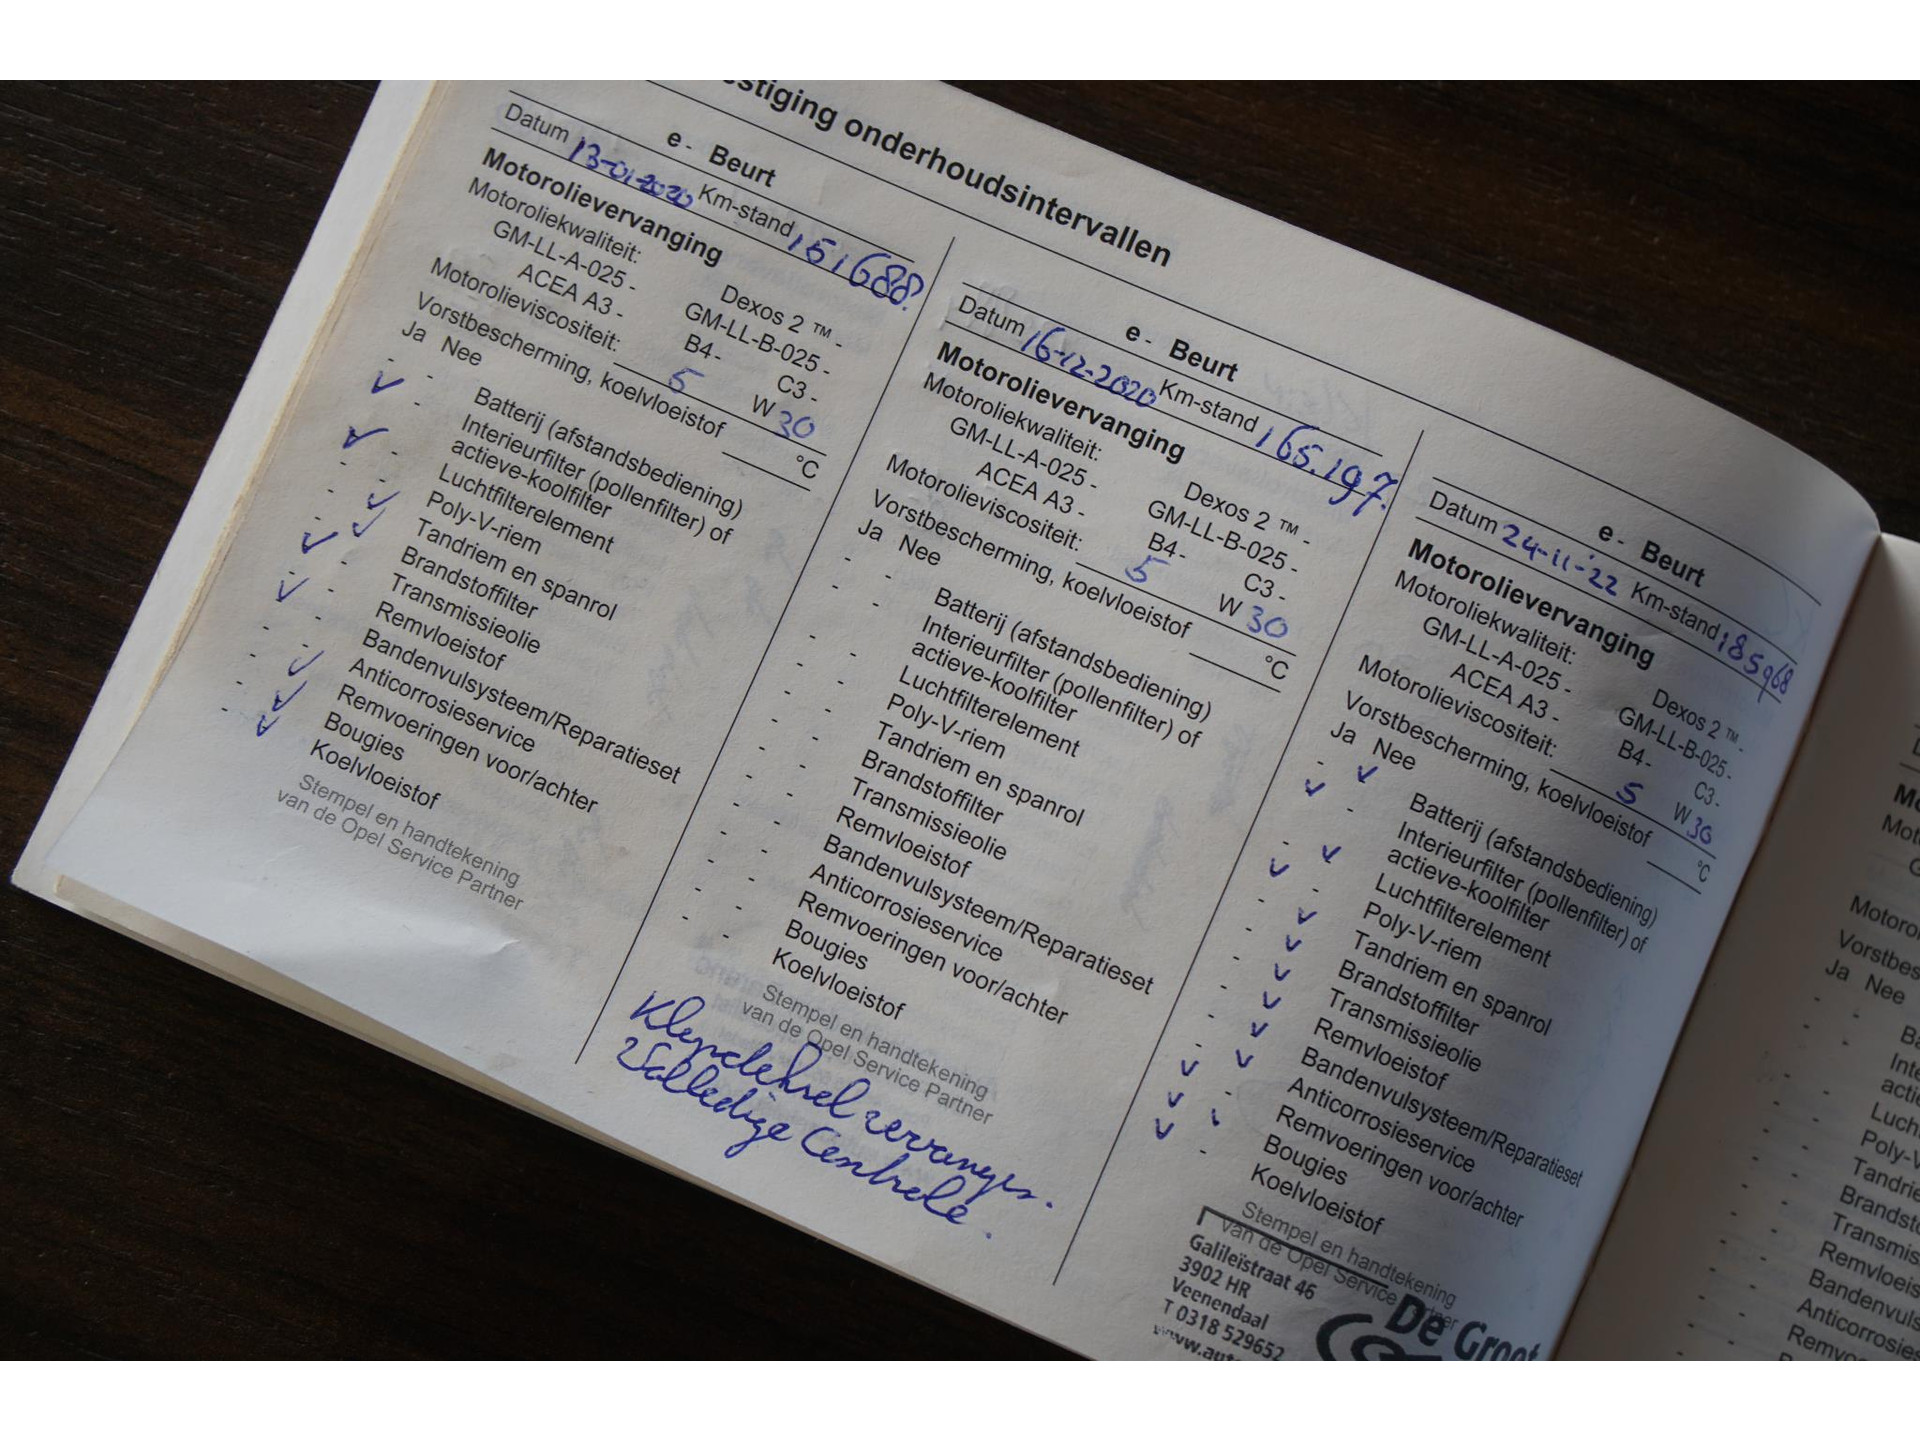 stiging onderhoudsintervallen
e - Beurt
Datum 13-01-2020 Km-stand 151688.
Motorolievervanging
Motoroliekwaliteit: Dexos 2 ™ -
GM-LL-A-025 - GM-LL-B-025 -
ACEA A3 - B4- C3 -
Motorolieviscositeit: 5 W 30
Vorstbescherming, koelvloeistof °C
Ja Nee
✓ - Batterij (afstandsbediening)
Interieurfilter (pollenfilter) of
actieve-koolfilter
Luchtfilterelement
Poly-V-riem
Tandriem en spanrol
Brandstoffilter
Transmissieolie
Remvloeistof
Bandenvulsysteem/Reparatieset
Anticorrosieservice
Remvoeringen voor/achter
Bougies
Koelvloeistof
Stempel en handtekening
van de Opel Service Partner
e - Beurt
Datum 16-12-2020 Km-stand 165.197.
Motorolievervanging
Motoroliekwaliteit: Dexos 2 ™ -
GM-LL-A-025 - GM-LL-B-025 -
ACEA A3 - B4- C3 -
Motorolieviscositeit: 5 W 30
Vorstbescherming, koelvloeistof °C
Ja Nee
- - Batterij (afstandsbediening)
- - Interieurfilter (pollenfilter) of
actieve-koolfilter
- - Luchtfilterelement
- - Poly-V-riem
- - Tandriem en spanrol
- - Brandstoffilter
- - Transmissieolie
- - Remvloeistof
- - Bandenvulsysteem/Reparatieset
- - Anticorrosieservice
- - Remvoeringen voor/achter
- - Bougies
- - Koelvloeistof
Stempel en handtekening
van de Opel Service Partner
Centrele.
e - Beurt
Datum 24-11-'22 Km-stand 185968
Motorolievervanging
Motoroliekwaliteit: Dexos 2 ™ -
GM-LL-A-025 - GM-LL-B-025 -
ACEA A3 - B4- C3 -
Motorolieviscositeit: 5 W 30
Vorstbescherming, koelvloeistof °C
Ja Nee
- ✓ Batterij (afstandsbediening)
✓ - Interieurfilter (pollenfilter) of
actieve-koolfilter
- ✓ Luchtfilterelement
✓ - Poly-V-riem
✓ Tandriem en spanrol
✓ Brandstoffilter
✓ Transmissieolie
✓ Remvloeistof
- ✓ Bandenvulsysteem/Reparatieset
- ✓ Anticorrosieservice
✓ - Remvoeringen voor/achter
✓ Bougies
✓ - Koelvloeistof
Stempel en handtekening
van de Opel Service Partner
Galileïstraat 46
3902 HR
Veenendaal
T 0318 529652
De Groot
Ja Nee